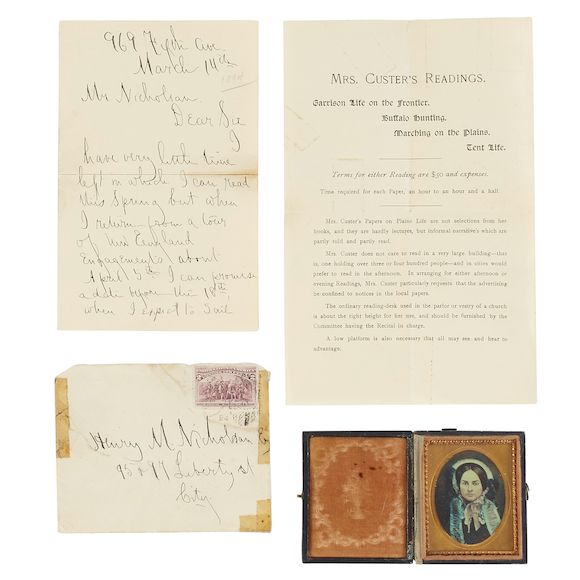 969 Fifth Ave.
March 14th
1894
Mr Nicholson
Dear Sir
I
have very little time
left in which I can read
this Spring but when
I return from a tour
of New England
Engagements about
April 5th I can promise
a date before the 18th,
when I expect to sail
MRS. CUSTER'S READINGS.
Garrison Life on the Frontier.
Buffalo Hunting.
Marching on the Plains.
Tent Life.
Terms for either Reading are $50 and expenses.
Time required for each Paper, an hour to an hour and a half.
Mrs. Custer's Papers on Plains Life are not selections from her
books, and they are hardly lectures, but informal narratives which are
partly told and partly read.
Mrs. Custer does not care to read in a very large building—that
is, one holding over three or four hundred people—and in cities would
prefer to read in the afternoon. In arranging for either afternoon or
evening Readings, Mrs. Custer particularly requests that the advertising
be confined to notices in the local papers.
The ordinary reading-desk used in the parlor or vestry of a church
is about the right height for her use, and should be furnished by the
Committee having the Recital in charge.
A low platform is also necessary that all may see and hear to
advantage.
Henry M Nicholson Esq
Liberty St
City